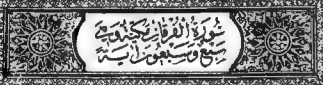 سُورَةُ الْفُرْقَانِ مَكِّيَّةٌ وَهِيَ
سَبْعٌ وَسَبْعُونَ آيَةً